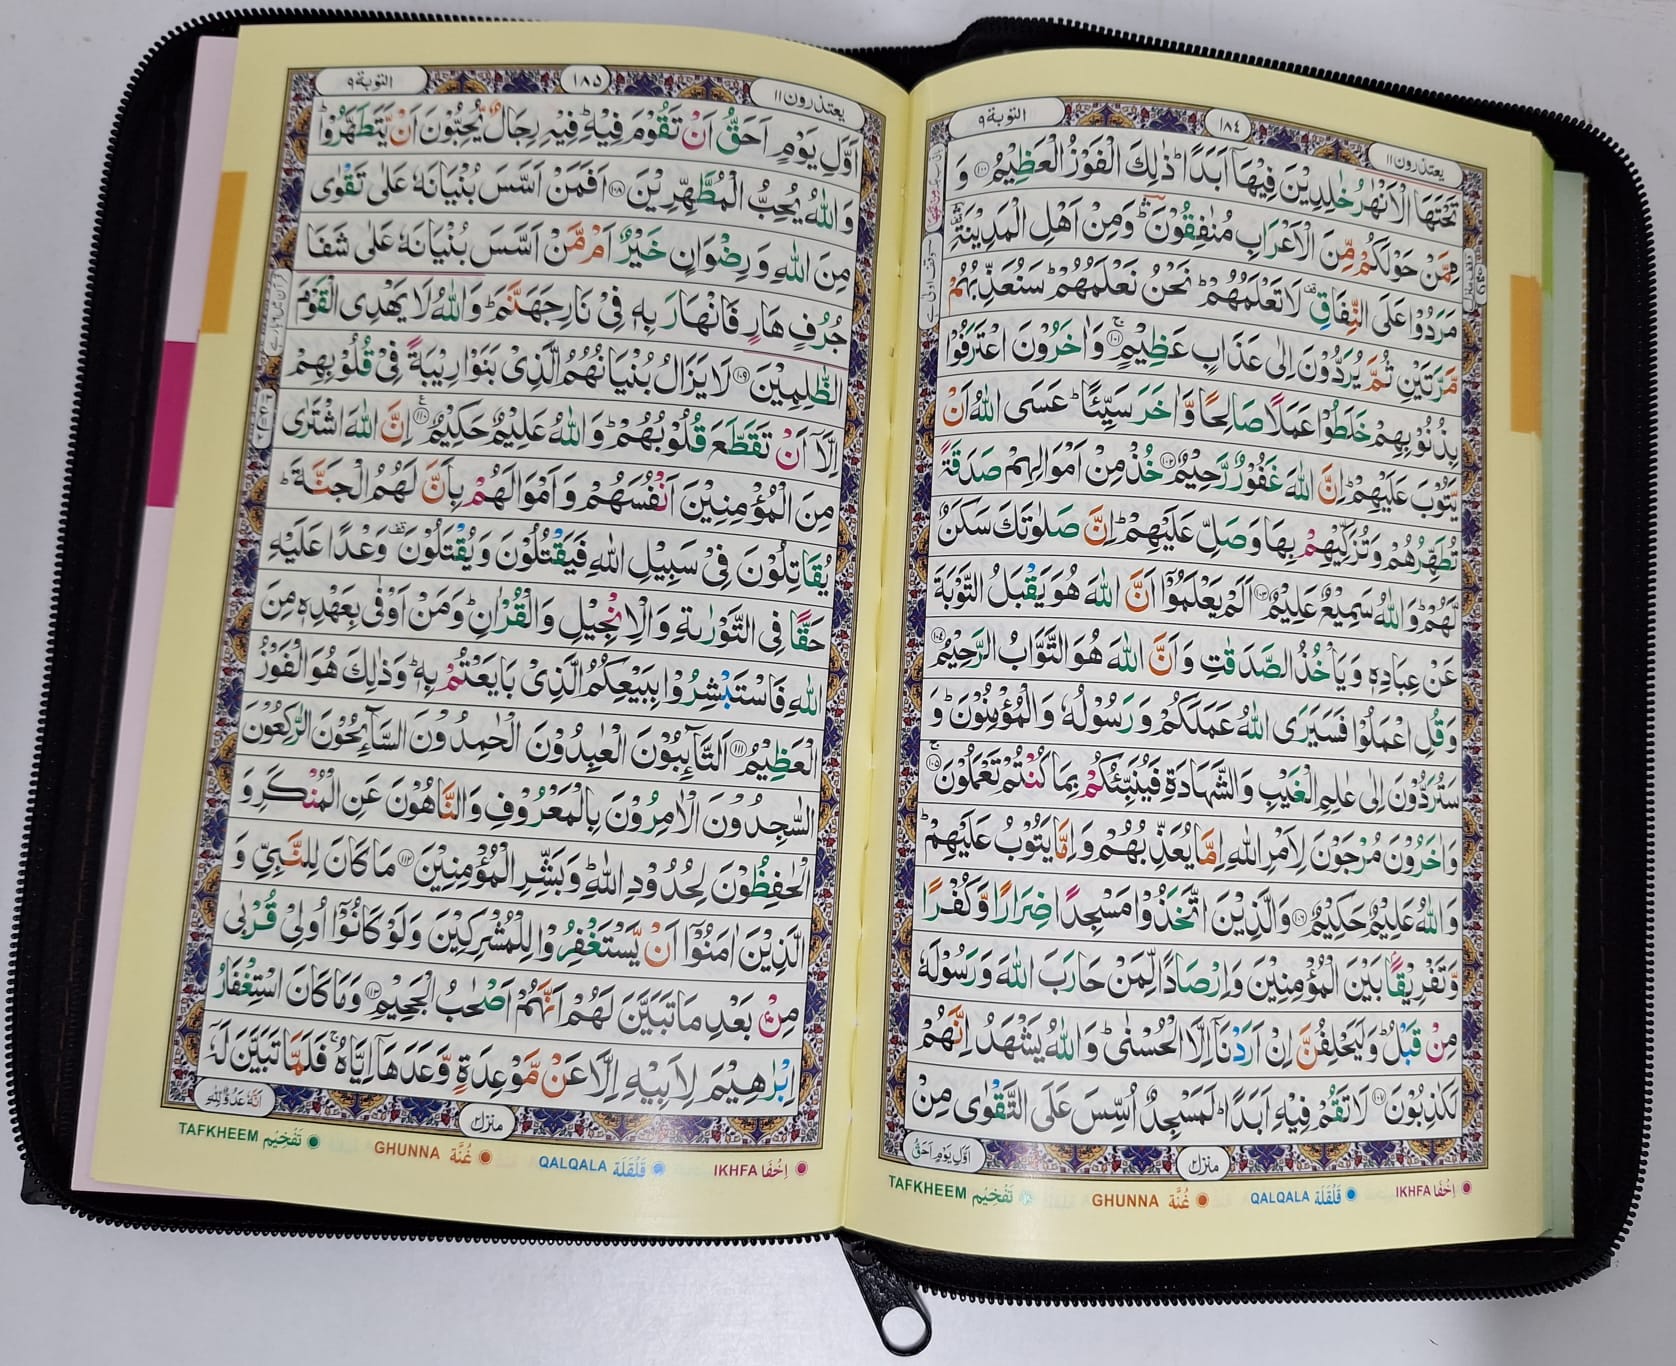 يعتذرون ١١
١٨٤
التوبة ٩
تَحْتَهَا الْاَنْهٰرُ خٰلِدِيْنَ فِيْهَاۤ اَبَدًاؕ ذٰلِكَ الْفَوْزُ الْعَظِيْمُ ۝١٠٠ وَ
مِمَّنْ حَوْلَكُمْ مِّنَ الْاَعْرَابِ مُنٰفِقُوْنَۛؕ وَمِنْ اَهْلِ الْمَدِيْنَةِۛؔ
مَرَدُوْا عَلَى النِّفَاقِࣞ لَا تَعْلَمُهُمْؕ نَحْنُ نَعْلَمُهُمْؕ سَنُعَذِّبُهُمْ
مَّرَّتَيْنِ ثُمَّ يُرَدُّوْنَ اِلٰى عَذَابٍ عَظِيْمٍۚ ۝١٠١ وَاٰخَرُوْنَ اعْتَرَفُوْا
بِذُنُوْبِهِمْ خَلَطُوْا عَمَلًا صَالِحًا وَّاٰخَرَ سَيِّئًاؕ عَسَى اللّٰهُ اَنْ
يَّتُوْبَ عَلَيْهِمْؕ اِنَّ اللّٰهَ غَفُوْرٌ رَّحِيْمٌ ۝١٠٢ خُذْ مِنْ اَمْوَالِهِمْ صَدَقَةً
تُطَهِّرُهُمْ وَتُزَكِّيْهِمْ بِهَا وَصَلِّ عَلَيْهِمْؕ اِنَّ صَلٰوتَكَ سَكَنٌ
لَّهُمْؕ وَاللّٰهُ سَمِيْعٌ عَلِيْمٌ ۝١٠٣ اَلَمْ يَعْلَمُوْۤا اَنَّ اللّٰهَ هُوَ يَقْبَلُ التَّوْبَةَ
عَنْ عِبَادِهٖ وَيَاْخُذُ الصَّدَقٰتِ وَاَنَّ اللّٰهَ هُوَ التَّوَّابُ الرَّحِيْمُ ۝١٠٤
وَقُلِ اعْمَلُوْا فَسَيَرَى اللّٰهُ عَمَلَكُمْ وَرَسُوْلُهٗ وَالْمُؤْمِنُوْنَؕ وَ
سَتُرَدُّوْنَ اِلٰى عٰلِمِ الْغَيْبِ وَالشَّهَادَةِ فَيُنَبِّئُكُمْ بِمَا كُنْتُمْ تَعْمَلُوْنَۚ ۝١٠٥
وَاٰخَرُوْنَ مُرْجَوْنَ لِاَمْرِ اللّٰهِ اِمَّا يُعَذِّبُهُمْ وَاِمَّا يَتُوْبُ عَلَيْهِمْؕ
وَاللّٰهُ عَلِيْمٌ حَكِيْمٌ ۝١٠٦ وَالَّذِيْنَ اتَّخَذُوْا مَسْجِدًا ضِرَارًا وَّكُفْرًا
وَّتَفْرِيْقًۢا بَيْنَ الْمُؤْمِنِيْنَ وَاِرْصَادًا لِّمَنْ حَارَبَ اللّٰهَ وَرَسُوْلَهٗ
مِنْ قَبْلُؕ وَلَيَحْلِفُنَّ اِنْ اَرَدْنَاۤ اِلَّا الْحُسْنٰىؕ وَاللّٰهُ يَشْهَدُ اِنَّهُمْ
لَكٰذِبُوْنَ ۝١٠٧ لَا تَقُمْ فِيْهِ اَبَدًاؕ لَمَسْجِدٌ اُسِّسَ عَلَى التَّقْوٰى مِنْ
منزل
اَوَّلِ يَوْمٍ اَحَقُّ
اِخْفَا IKHFA
قَلْقَلَة QALQALA
غُنَّة GHUNNA
تَفْخِيْم TAFKHEEM
يعتذرون ١١
١٨٥
التوبة ٩
اَوَّلِ يَوْمٍ اَحَقُّ اَنْ تَقُوْمَ فِيْهِؕ فِيْهِ رِجَالٌ يُّحِبُّوْنَ اَنْ يَّتَطَهَّرُوْاؕ
وَاللّٰهُ يُحِبُّ الْمُطَّهِّرِيْنَ ۝١٠٨ اَفَمَنْ اَسَّسَ بُنْيَانَهٗ عَلٰى تَقْوٰى
مِنَ اللّٰهِ وَرِضْوَانٍ خَيْرٌ اَمْ مَّنْ اَسَّسَ بُنْيَانَهٗ عَلٰى شَفَا
جُرُفٍ هَارٍ فَانْهَارَ بِهٖ فِيْ نَارِ جَهَنَّمَؕ وَاللّٰهُ لَا يَهْدِى الْقَوْمَ
الظّٰلِمِيْنَ ۝١٠٩ لَا يَزَالُ بُنْيَانُهُمُ الَّذِيْ بَنَوْا رِيْبَةً فِيْ قُلُوْبِهِمْ
اِلَّاۤ اَنْ تَقَطَّعَ قُلُوْبُهُمْؕ وَاللّٰهُ عَلِيْمٌ حَكِيْمٌ ۝١١٠ اِنَّ اللّٰهَ اشْتَرٰى
مِنَ الْمُؤْمِنِيْنَ اَنْفُسَهُمْ وَاَمْوَالَهُمْ بِاَنَّ لَهُمُ الْجَنَّةَؕ
يُقَاتِلُوْنَ فِيْ سَبِيْلِ اللّٰهِ فَيَقْتُلُوْنَ وَيُقْتَلُوْنَࣞ وَعْدًا عَلَيْهِ
حَقًّا فِى التَّوْرٰىةِ وَالْاِنْجِيْلِ وَالْقُرْاٰنِؕ وَمَنْ اَوْفٰى بِعَهْدِهٖ مِنَ
اللّٰهِ فَاسْتَبْشِرُوْا بِبَيْعِكُمُ الَّذِيْ بَايَعْتُمْ بِهٖؕ وَذٰلِكَ هُوَ الْفَوْزُ
الْعَظِيْمُ ۝١١١ اَلتَّآئِبُوْنَ الْعٰبِدُوْنَ الْحٰمِدُوْنَ السَّآئِحُوْنَ الرّٰكِعُوْنَ
السّٰجِدُوْنَ الْاٰمِرُوْنَ بِالْمَعْرُوْفِ وَالنَّاهُوْنَ عَنِ الْمُنْكَرِ وَ
الْحٰفِظُوْنَ لِحُدُوْدِ اللّٰهِؕ وَبَشِّرِ الْمُؤْمِنِيْنَ ۝١١٢ مَا كَانَ لِلنَّبِيِّ وَ
الَّذِيْنَ اٰمَنُوْۤا اَنْ يَّسْتَغْفِرُوْا لِلْمُشْرِكِيْنَ وَلَوْ كَانُوْۤا اُولِيْ قُرْبٰى
مِنْۢ بَعْدِ مَا تَبَيَّنَ لَهُمْ اَنَّهُمْ اَصْحٰبُ الْجَحِيْمِ ۝١١٣ وَمَا كَانَ اسْتِغْفَارُ
اِبْرٰهِيْمَ لِاَبِيْهِ اِلَّا عَنْ مَّوْعِدَةٍ وَّعَدَهَاۤ اِيَّاهُۚ فَلَمَّا تَبَيَّنَ لَهٗۤ
منزل
اَنَّهٗ عَدُوٌّ لِّلّٰهِ
اِخْفَا IKHFA
قَلْقَلَة QALQALA
غُنَّة GHUNNA
تَفْخِيْم TAFKHEEM